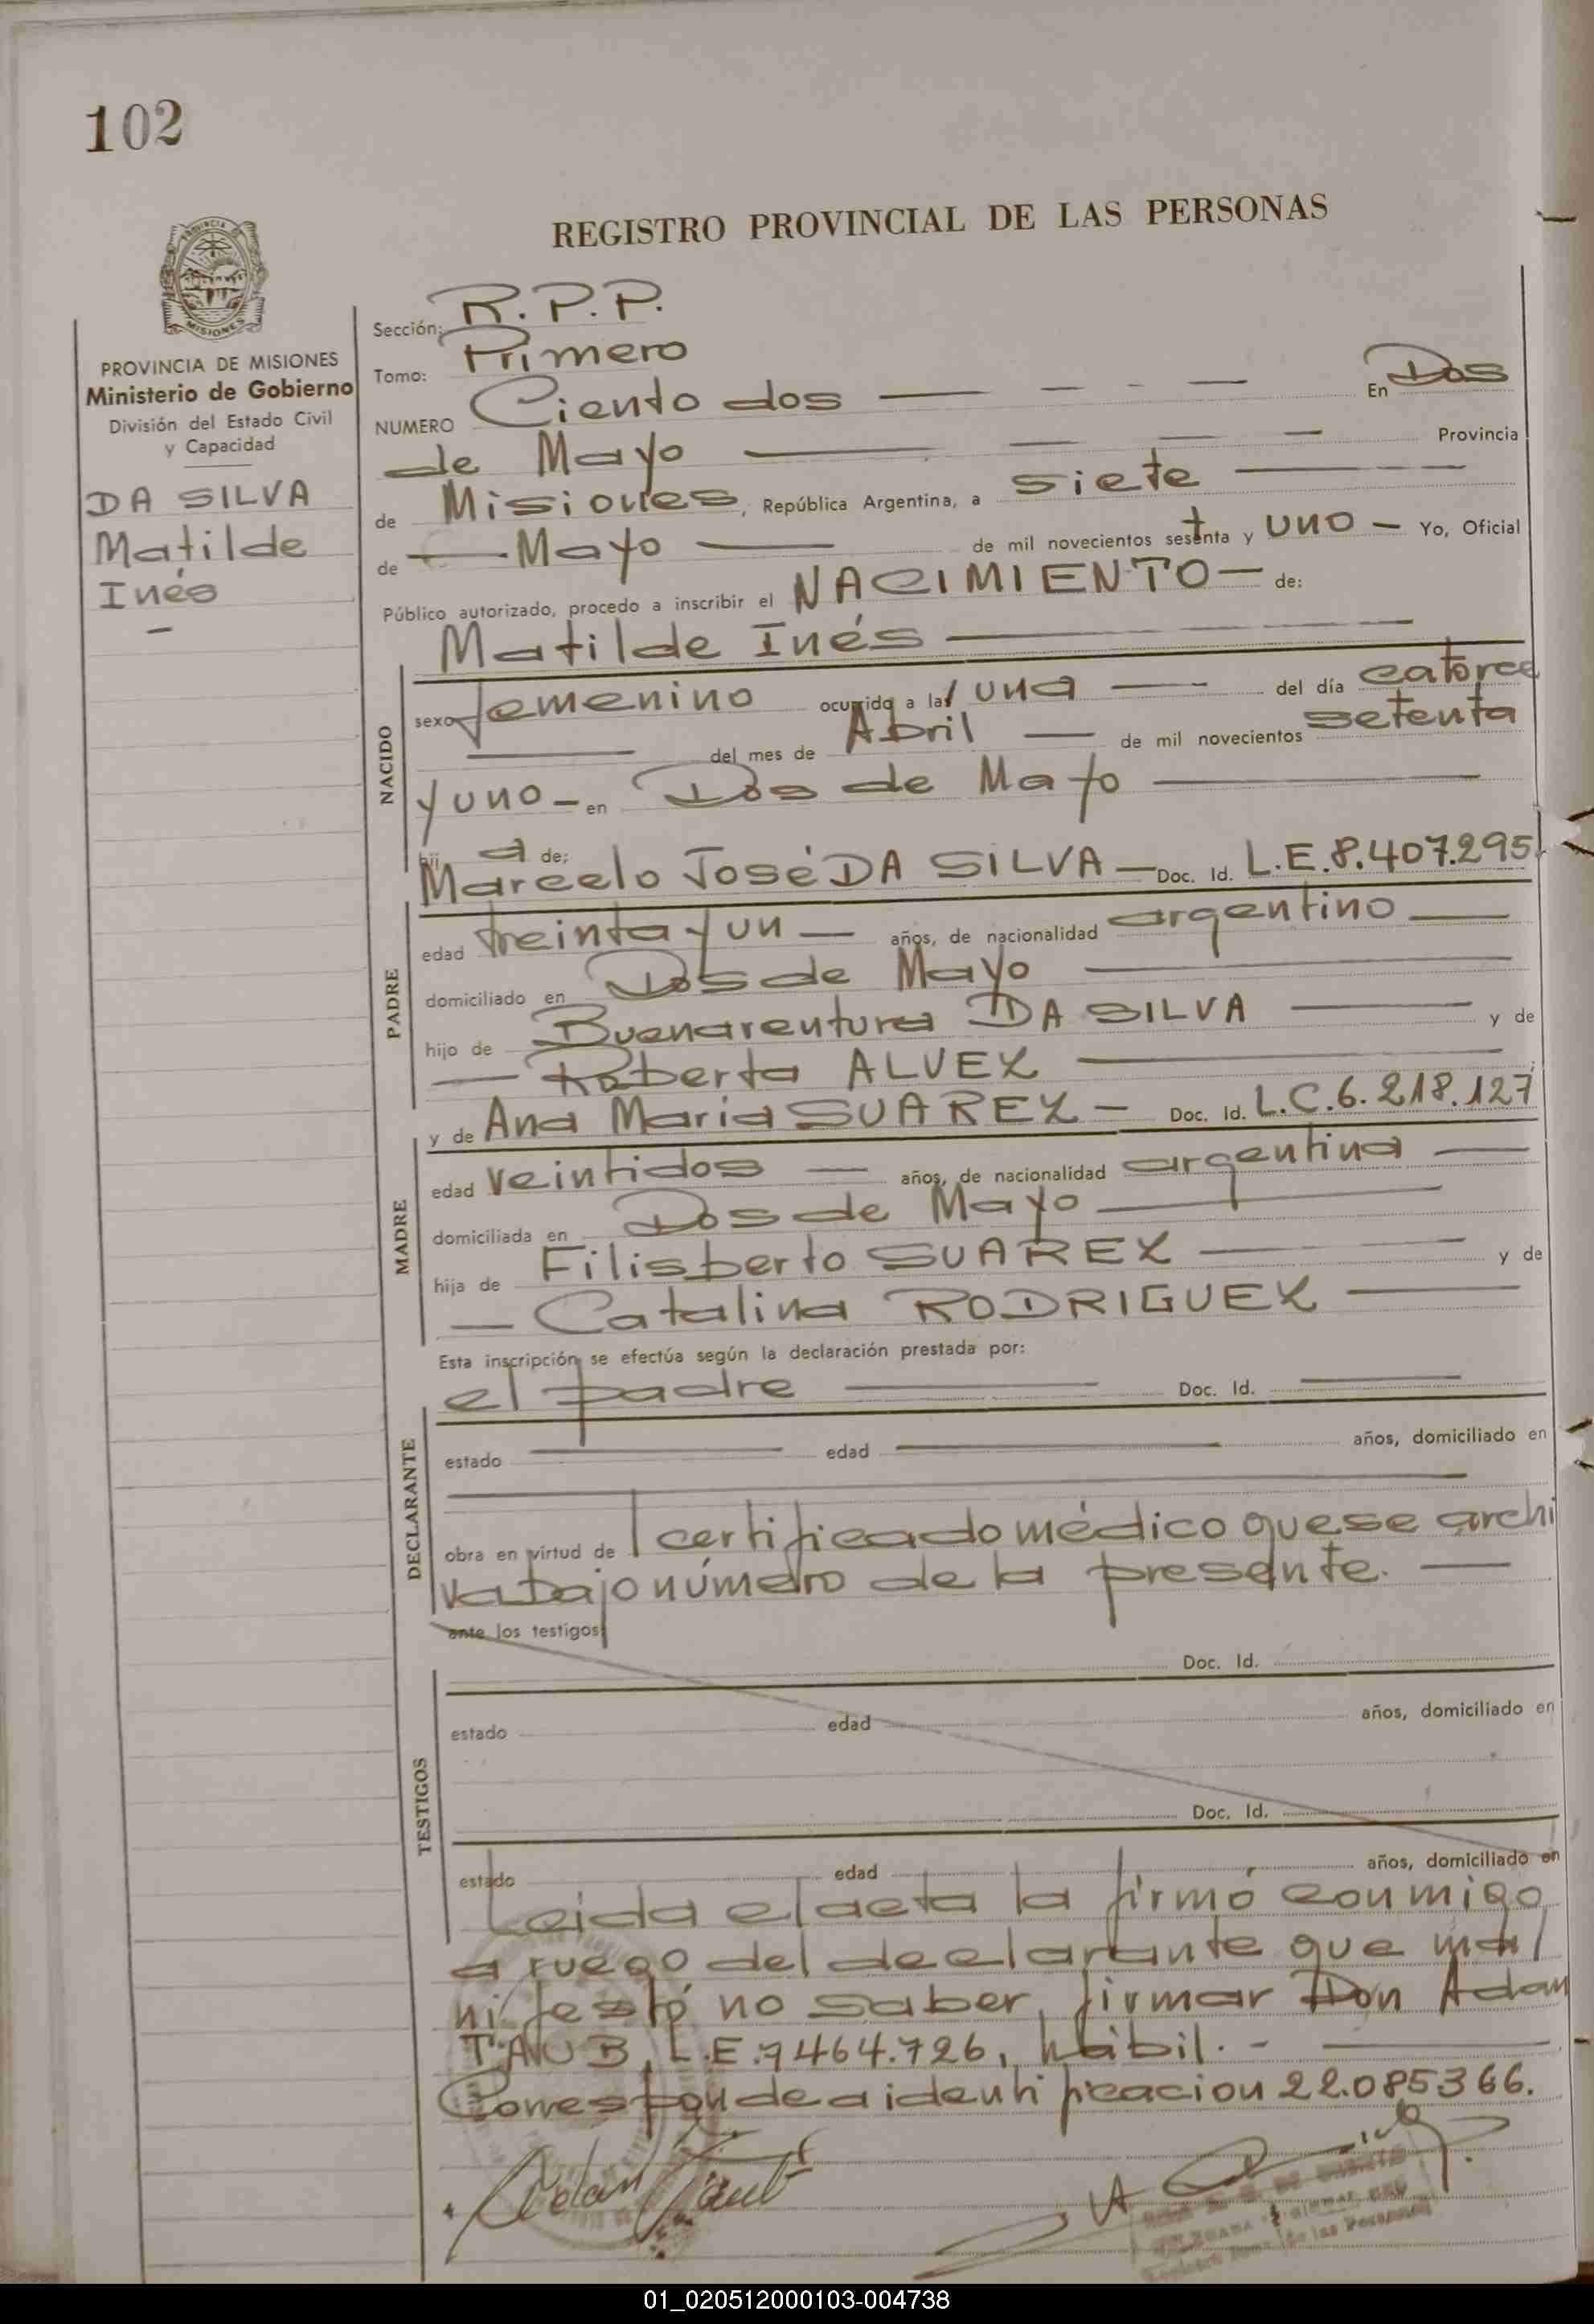 102
REGISTRO PROVINCIAL DE LAS PERSONAS
PROVINCIA DE
MISIONES
PROVINCIA DE MISIONES
Ministerio de Gobierno
División del Estado Civil
y Capacidad
DA SILVA
Matilde
Inés
Sección: R.P.P.
Tomo: Primero
NUMERO Ciento dos — — - — En Dos
de Mayo — — — — Provincia
de Misiones, República Argentina, a siete — — —
de — Mayo — de mil novecientos setenta y uno — Yo, Oficial
Público autorizado, procedo a inscribir el NACIMIENTO — de:
Matilde Inés —
NACIDO
sexo femenino ocurrido a la una — del día catorce
— del mes de Abril — de mil novecientos setenta
y uno - en Dos de Mayo —
hij a de:
Marcelo José DA SILVA — Doc. Id. L.E.8.407.295
PADRE
edad treinta y un — años, de nacionalidad argentino —
domiciliado en Dos de Mayo —
hijo de Buenaventura DA SILVA — y de
— Roberta ALVEZ —
y de Ana María SUAREZ — Doc. Id. L.C.6.218.127
MADRE
edad veintidos — años, de nacionalidad argentina —
domiciliada en Dos de Mayo —
hija de Filisberto SUAREZ — y de
— Catalina RODRIGUEZ —
Esta inscripción se efectúa según la declaración prestada por:
el padre — Doc. Id. —
DECLARANTE
estado — edad — años, domiciliado en
—
obra en virtud de l certificado médico que se archi
va bajo número de la presente. —
ante los testigos
Doc. Id.
TESTIGOS
estado edad años, domiciliado en
Doc. Id.
estado edad años, domiciliado en
Leída el acta la firmó conmigo
a ruego del declarante que ma
nifestó no saber firmar Don Adan
TAUB, L.E.7464.726, hábil. - —
Corresponde a identificacion 22.085366.
Adan Taub
01_020512000103-004738